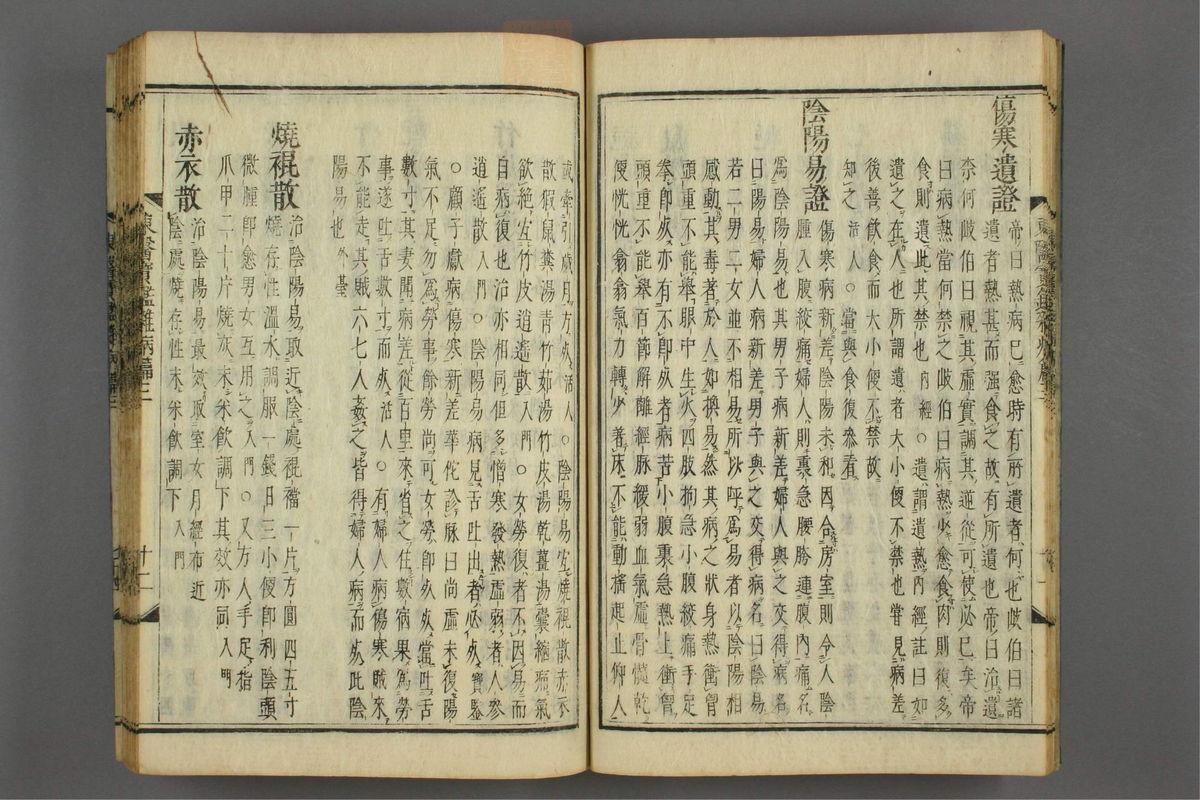 傷寒遺證
帝曰熱病已愈時有所遺者何也岐伯曰諸
遺者熱甚而强食之故有所遺也帝曰治遺
柰何岐伯曰視其虛實調其逆從可使必已矣帝
曰病熱當何禁之岐伯曰病熱少愈食肉則復多
食則遺此其禁也內經○遺謂遺熱內經註曰如
遺之在人也所謂遺者大小便不禁也嘗見病差
後善飲食而大小便不禁故
知之活人○當與食復叅看
陰陽易證
傷寒病新差陰陽未和因合房室則令人陰
腫入腹絞痛婦人則裏急腰胯連腹內痛名
爲陰陽易也其男子病新差婦人與之交得病名
曰陽易婦人病新差男子與之交得病名曰陰易
若二男二女並不相易所以呼爲易者以陰陽相
感動其毒著於人如換易然其病之狀身熱衝胷
頭重不能舉眼中生火四肢拘急小腹絞痛手足
拳卽死亦有不卽死者病苦小腹裏急熱上衝胷
頭重不能舉百節解離經脉緩弱血氣虛骨髓乾
便恍恍翕翕氣力轉少著床不能動搖起止仰人
或牽引歲月方死活人○陰陽易宜燒裩散赤衣
散猳鼠糞湯靑竹茹湯竹皮湯乾薑湯𧞔繝瓶氣
飮絶宜竹皮逍遙散入門○女勞復者不因易而
自病復也治亦相同但多憎寒發熱虛弱者人參
逍遙散入門○陰陽易病見舌吐出者必死寶鑑
○顧子獻病傷寒新差華佗診脉曰尚虛未復陽
氣不足勿爲勞事餘勞尚可女勞卽死死當吐舌
數寸其妻聞病差從百里來省之住數宿果爲勞
事遂吐舌數寸而死活人○有婦人病傷寒賊來
不能走其賊六七人姦之皆得婦人病而死此陰
陽易也外臺
燒裩散
治陰陽易取近陰處裩襠一片方圓四五寸
燒存性溫水調服一錢日三小便卽利陰頭
微腫卽愈男女互用之入門○又方人手足指
爪甲二十片燒灰末米飮調下其效亦同入門
赤衣散
治陰陽易最效取室女月經布近
陰處燒存性末米飮調下入門
東醫寶鑑雜病篇三
十二